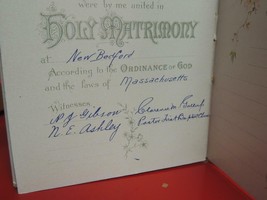 were by me united in
HOLY MATRIMONY
at New Bedford
According to the ORDINANCE OF GOD
and the laws of Massachusetts
Witnesses
N. E. Ashley
Gibson
Pastor First